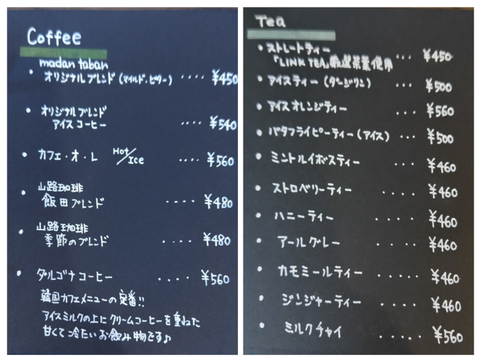 Coffee
madan taban
・オリジナルブレンド(マイルド、ビター) ‥‥ ¥450
・オリジナルブレンド
アイスコーヒー ‥‥ ¥540
・カフェ・オ・レ Hot/Ice ‥‥ ¥560
・山路珈琲
飯田ブレンド ‥‥ ¥480
・山路珈琲
季節のブレンド ‥‥ ¥480
・ダルゴナコーヒー ‥‥ ¥560
韓国カフェメニューの定番!!
アイスミルクの上にクリームコーヒーを重ねた
甘くて冷たいお飲み物です♪
Tea
・ストレートティー ‥‥ ¥450
「LINK TEA」厳選茶葉使用
・アイスティー(ダージリン) ‥‥ ¥500
・アイスオレンジティー ‥‥ ¥560
・バタフライピーティー(アイス) ‥‥ ¥500
・ミントルイボスティー ‥‥ ¥460
・ストロベリーティー ‥‥ ¥460
・ハニーティー ‥‥ ¥460
・アールグレー ‥‥ ¥460
・カモミールティー ‥‥ ¥460
・ジンジャーティー ‥‥ ¥460
・ミルクチャイ ‥‥ ¥560